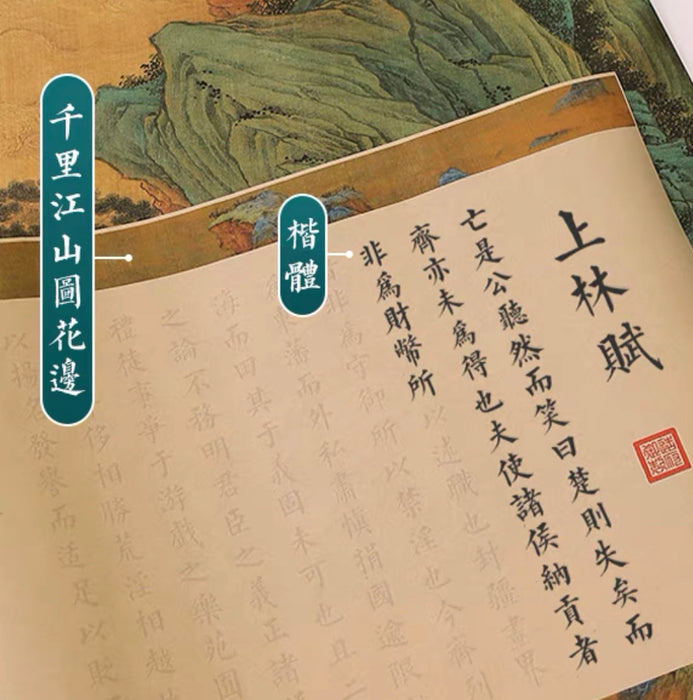 千里江山圖花邊
楷體
上林賦
亡是公聽然而笑曰楚則失矣而
齊亦未爲得也夫使諸侯納貢者
非爲財幣所以述職也封疆畫界
非爲守御所禁淫也今齊列
東藩而外私肅慎捐國逾限
海而田其于義固未可也且二
之論不務明君臣之義正諸
禮徒事爭于游戲之樂苑囿
侈相勝荒淫相越
以揚名發譽而适足以貶